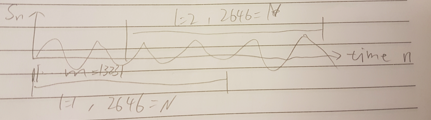 l=2, 2646=N
Sn
time n
m=1323
l=1, 2646=N